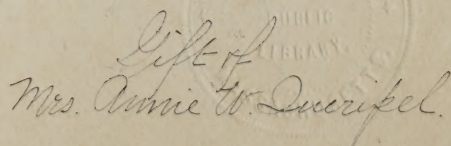 PUBLIC
LIBRARY.
Gift of
Mrs. Annie W. Queripel.